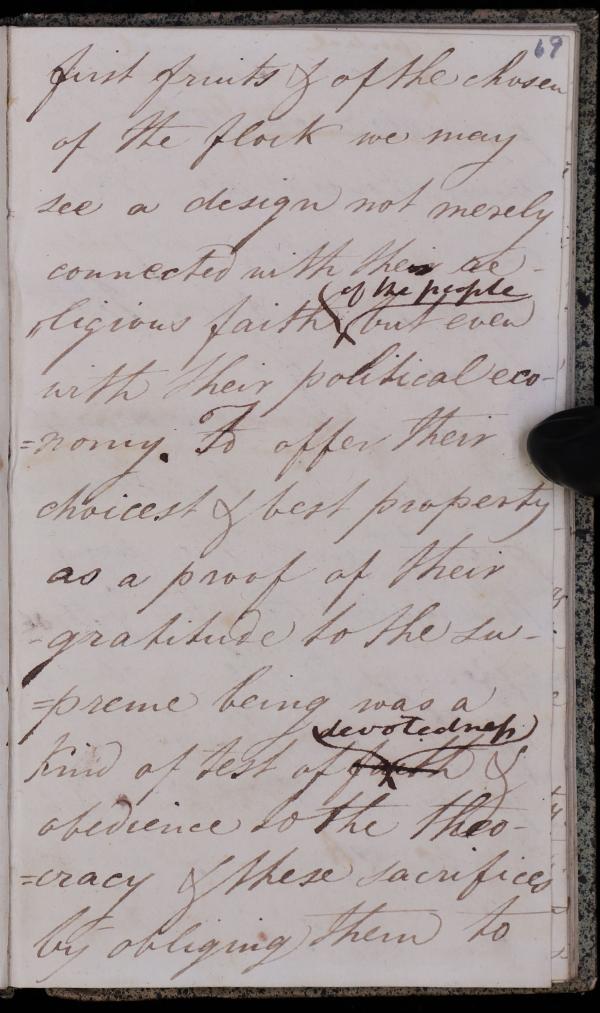 69
first fruits & of the chosen
of the flock we may
see a design not merely
connected with their re-
of the people
ligious faith but even
with their political eco-
=nomy. To offer their
choicest & best property
as a proof of their
-gratitude to the su-
=preme being was a
devotedness
kind of test of faith &
obedience to the theo-
=cracy & these sacrifices
by obliging them to